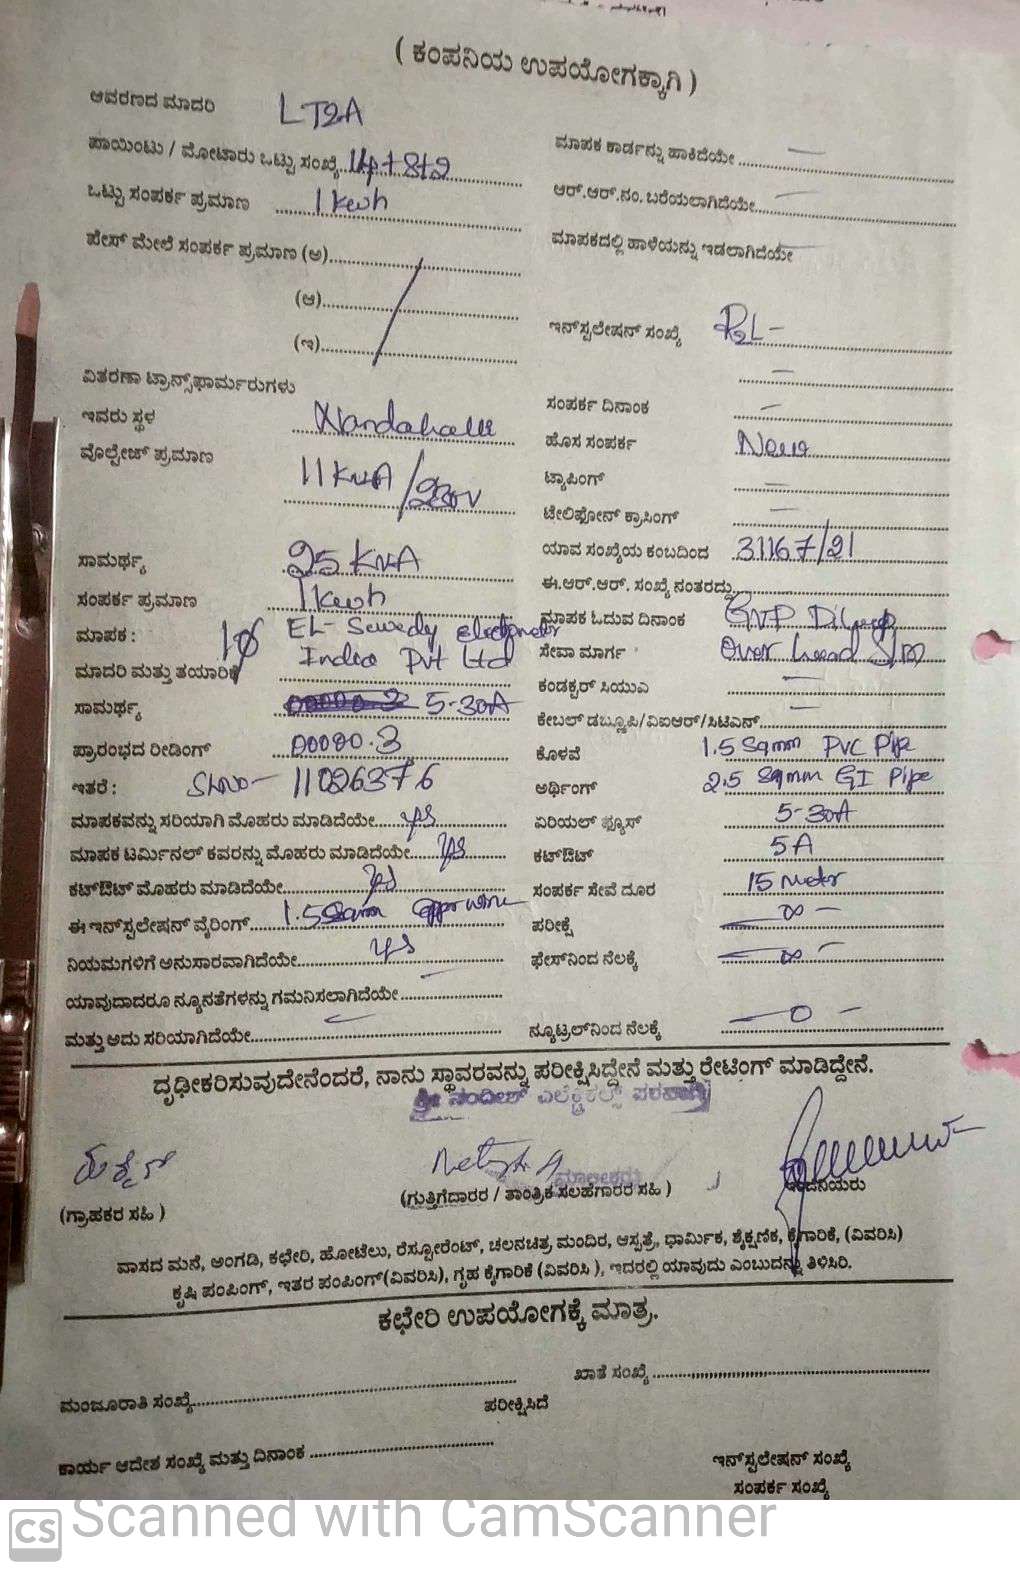 ( ಕಂಪನಿಯ ಉಪಯೋಗಕ್ಕಾಗಿ )
ಆವರಣದ ಮಾದರಿ LT2A
ಪಾಯಿಂಟು / ಮೋಟಾರು ಒಟ್ಟು ಸಂಖ್ಯೆ
ಮಾಪಕ ಕಾರ್ಡನ್ನು ಹಾಕಿದೆಯೇ
ಒಟ್ಟು ಸಂಪರ್ಕ ಪ್ರಮಾಣ 1 kwh
ಆರ್.ಆರ್.ನಂ. ಬರೆಯಲಾಗಿದೆಯೇ
ಪೇಸ್ ಮೇಲೆ ಸಂಪರ್ಕ ಪ್ರಮಾಣ (ಅ)
ಮಾಪಕದಲ್ಲಿ ಹಾಳೆಯನ್ನು ಇಡಲಾಗಿದೆಯೇ
(ಆ)
(ಇ)
ಇನ್‌ಸ್ಪಲೇಷನ್ ಸಂಖ್ಯೆ
ವಿತರಣಾ ಟ್ರಾನ್ಸ್‌ಫಾರ್ಮರುಗಳು
ಇವರು ಸ್ಥಳ
ಸಂಪರ್ಕ ದಿನಾಂಕ
ವೊಲ್ಟೇಜ್ ಪ್ರಮಾಣ 11 KVA / 230V
ಹೊಸ ಸಂಪರ್ಕ New
ಟ್ಯಾಪಿಂಗ್
ಟೇಲಿಫೋನ್ ಕ್ರಾಸಿಂಗ್
ಸಾಮರ್ಥ್ಯ 25 KVA
ಯಾವ ಸಂಖ್ಯೆಯ ಕಂಬದಿಂದ 31167/21
ಸಂಪರ್ಕ ಪ್ರಮಾಣ 1 kwh
ಈ.ಆರ್.ಆರ್. ಸಂಖ್ಯೆ ನಂತರದ್ದು
ಮಾಪಕ : 1φ EL- Sewedy
ಮಾಪಕ ಓದುವ ದಿನಾಂಕ
ಮಾದರಿ ಮತ್ತು ತಯಾರಿಕೆ India Pvt Ltd
ಸೇವಾ ಮಾರ್ಗ Over head
ಕಂಡಕ್ಟರ್ ಸಿಯುಎ
ಸಾಮರ್ಥ್ಯ 5-30A
ಕೇಬಲ್ ಡಬ್ಲೂಪಿ/ವಿಐಆರ್/ಸಿಟಿಎನ್
ಪ್ರಾರಂಭದ ರೀಡಿಂಗ್ 00000.3
ಕೊಳವೆ 1.5 Sqmm PVC Pipe
ಇತರೆ : Sl.No- 11026376
ಅರ್ಥಿಂಗ್ 2.5 Sqmm GI Pipe
ಮಾಪಕವನ್ನು ಸರಿಯಾಗಿ ಮೊಹರು ಮಾಡಿದೆಯೇ yes
ಏರಿಯಲ್ ಫ್ಯೂಸ್ 5-30A
ಮಾಪಕ ಟರ್ಮಿನಲ್ ಕವರನ್ನು ಮೊಹರು ಮಾಡಿದೆಯೇ yes
ಕಟ್‌ಔಟ್ 5A
ಕಟ್‌ಔಟ್ ಮೊಹರು ಮಾಡಿದೆಯೇ yes
ಸಂಪರ್ಕ ಸೇವೆ ದೂರ 15 Meter
ಈ ಇನ್‌ಸ್ಪಲೇಷನ್ ವೈರಿಂಗ್ 1.5 Sqmm
ಪರೀಕ್ಷೆ ∞ -
ನಿಯಮಗಳಿಗೆ ಅನುಸಾರವಾಗಿದೆಯೇ yes
ಫೇಸ್‌ನಿಂದ ನೆಲಕ್ಕೆ ∞ -
ಯಾವುದಾದರೂ ನ್ಯೂನತೆಗಳನ್ನು ಗಮನಿಸಲಾಗಿದೆಯೇ
ಮತ್ತು ಅದು ಸರಿಯಾಗಿದೆಯೇ
ನ್ಯೂಟ್ರಲ್‌ನಿಂದ ನೆಲಕ್ಕೆ - 0 -
ದೃಢೀಕರಿಸುವುದೇನೆಂದರೆ, ನಾನು ಸ್ಥಾವರವನ್ನು ಪರೀಕ್ಷಿಸಿದ್ದೇನೆ ಮತ್ತು ರೇಟಿಂಗ್ ಮಾಡಿದ್ದೇನೆ.
ಶ್ರೀ ನಂದೀಶ್ ಎಲೆಕ್ಟ್ರಿಕಲ್ಸ್
ಮಾಲೀಕರು
(ಗ್ರಾಹಕರ ಸಹಿ )
(ಗುತ್ತಿಗೆದಾರರ / ತಾಂತ್ರಿಕ ಸಲಹೆಗಾರರ ಸಹಿ )
ವಾಸದ ಮನೆ, ಅಂಗಡಿ, ಕಛೇರಿ, ಹೋಟೆಲು, ರೆಸ್ಟೋರೆಂಟ್, ಚಲನಚಿತ್ರ ಮಂದಿರ, ಆಸ್ಪತ್ರೆ, ಧಾರ್ಮಿಕ, ಶೈಕ್ಷಣಿಕ, ಕೈಗಾರಿಕೆ, (ವಿವರಿಸಿ)
ಕೃಷಿ ಪಂಪಿಂಗ್, ಇತರ ಪಂಪಿಂಗ್(ವಿವರಿಸಿ), ಗೃಹ ಕೈಗಾರಿಕೆ (ವಿವರಿಸಿ ), ಇದರಲ್ಲಿ ಯಾವುದು ಎಂಬುದನ್ನು ತಿಳಿಸಿರಿ.
ಕಛೇರಿ ಉಪಯೋಗಕ್ಕೆ ಮಾತ್ರ.
ಮಂಜೂರಾತಿ ಸಂಖ್ಯೆ
ಖಾತೆ ಸಂಖ್ಯೆ
ಪರೀಕ್ಷಿಸಿದೆ
ಕಾರ್ಯ ಆದೇಶ ಸಂಖ್ಯೆ ಮತ್ತು ದಿನಾಂಕ
ಇನ್‌ಸ್ಪಲೇಷನ್ ಸಂಖ್ಯೆ
ಸಂಪರ್ಕ ಸಂಖ್ಯೆ
CS Scanned with CamScanner